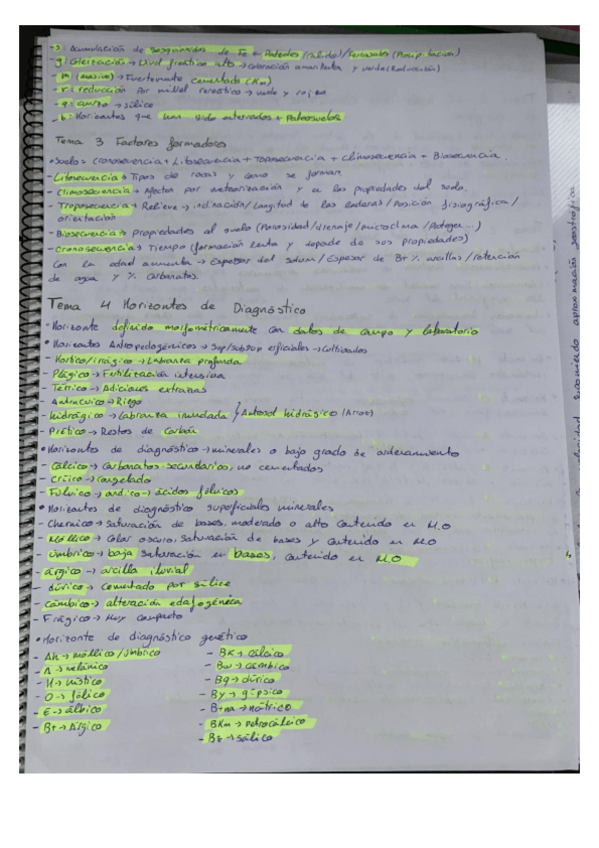 -s: Acumulación de sesquióxidos de Fe + Paredes (válido)/ (Precipitación)
-g: Gleización → Nivel freático alto → Coloración amarillenta y verde (Reducción)
- m (masivo) → Fuertemente cementado (Km)
- r: reducción por nivel freático → verde y rojiza
- q: cuarzo → sílice
- b: Horizontes que han sido enterrados + Paleosuelos
Tema 3 Factores formadores
• Suelo = Cronosecuencia + Litosecuencia + Toposecuencia + Climosecuencia + Biosecuencia
- Litosecuencia → Tipos de rocas y como se forman
- Climosecuencia → Afectan por meteorización y a las propiedades del suelo.
- Toposecuencia → Relieve → inclinación/Longitud de las laderas/posición fisiográfica/
orientación
- Biosecuencia → propiedades al suelo (Porosidad/drenaje/microclima/Proteger...)
- Cronosecuencia → Tiempo (formación lenta y depende de sus propiedades)
Con la edad aumenta → Espesor del solum/Espesor de Bt % arcillas/retención
de agua y % carbonatos.
Tema 4 Horizontes de Diagnóstico
• Horizonte definido morfométricamente con datos de campo y laboratorio
• Horizontes Antropedogénicos → Sup/subsup erficiales → Cultivados
- Hortico/irrágico → Labranza profunda
- Plágico → Fertilización intensiva
- Térrico → Adiciones extrañas
- Antracuico → Riego
- hidrágico → Labranza inundada } Antrosol hidrágico (Arroz)
- Prético → Restos de Carbón
• Horizontes de diagnóstico → minerales o bajo grado de ordenamiento
- Cálcico → Carbonatos secundarios, no cementados
- Críico → congelado
- Fúlvico → ándico → ácidos fúlvicos
• Horizontes de diagnóstico superficiales minerales
- Chernico → Saturación de bases, moderado o alto contenido en M.O
- Móllico → Color oscuro, Saturación de bases y contenido en M.O
- Úmbrico → baja saturación en bases, contenido en M.O
- árgico → arcilla iluvial
- dúrico → cementado por sílice
- cámbico → alteración edafogénica
- Frágico → Muy compacto
• Horizonte de diagnóstico genético
- Ah → móllico/úmbrico
- A → melánico
- H → hístico
- O → fólico
- E → álbico
- Bt → Árgico
- Bk → cálcico
- Bw → cámbico
- Bq → dúrico
- By → gípsico
- Btna → nátrico
- BKm → petrocálcico
- Bz → sálico
aproximación geostrófica